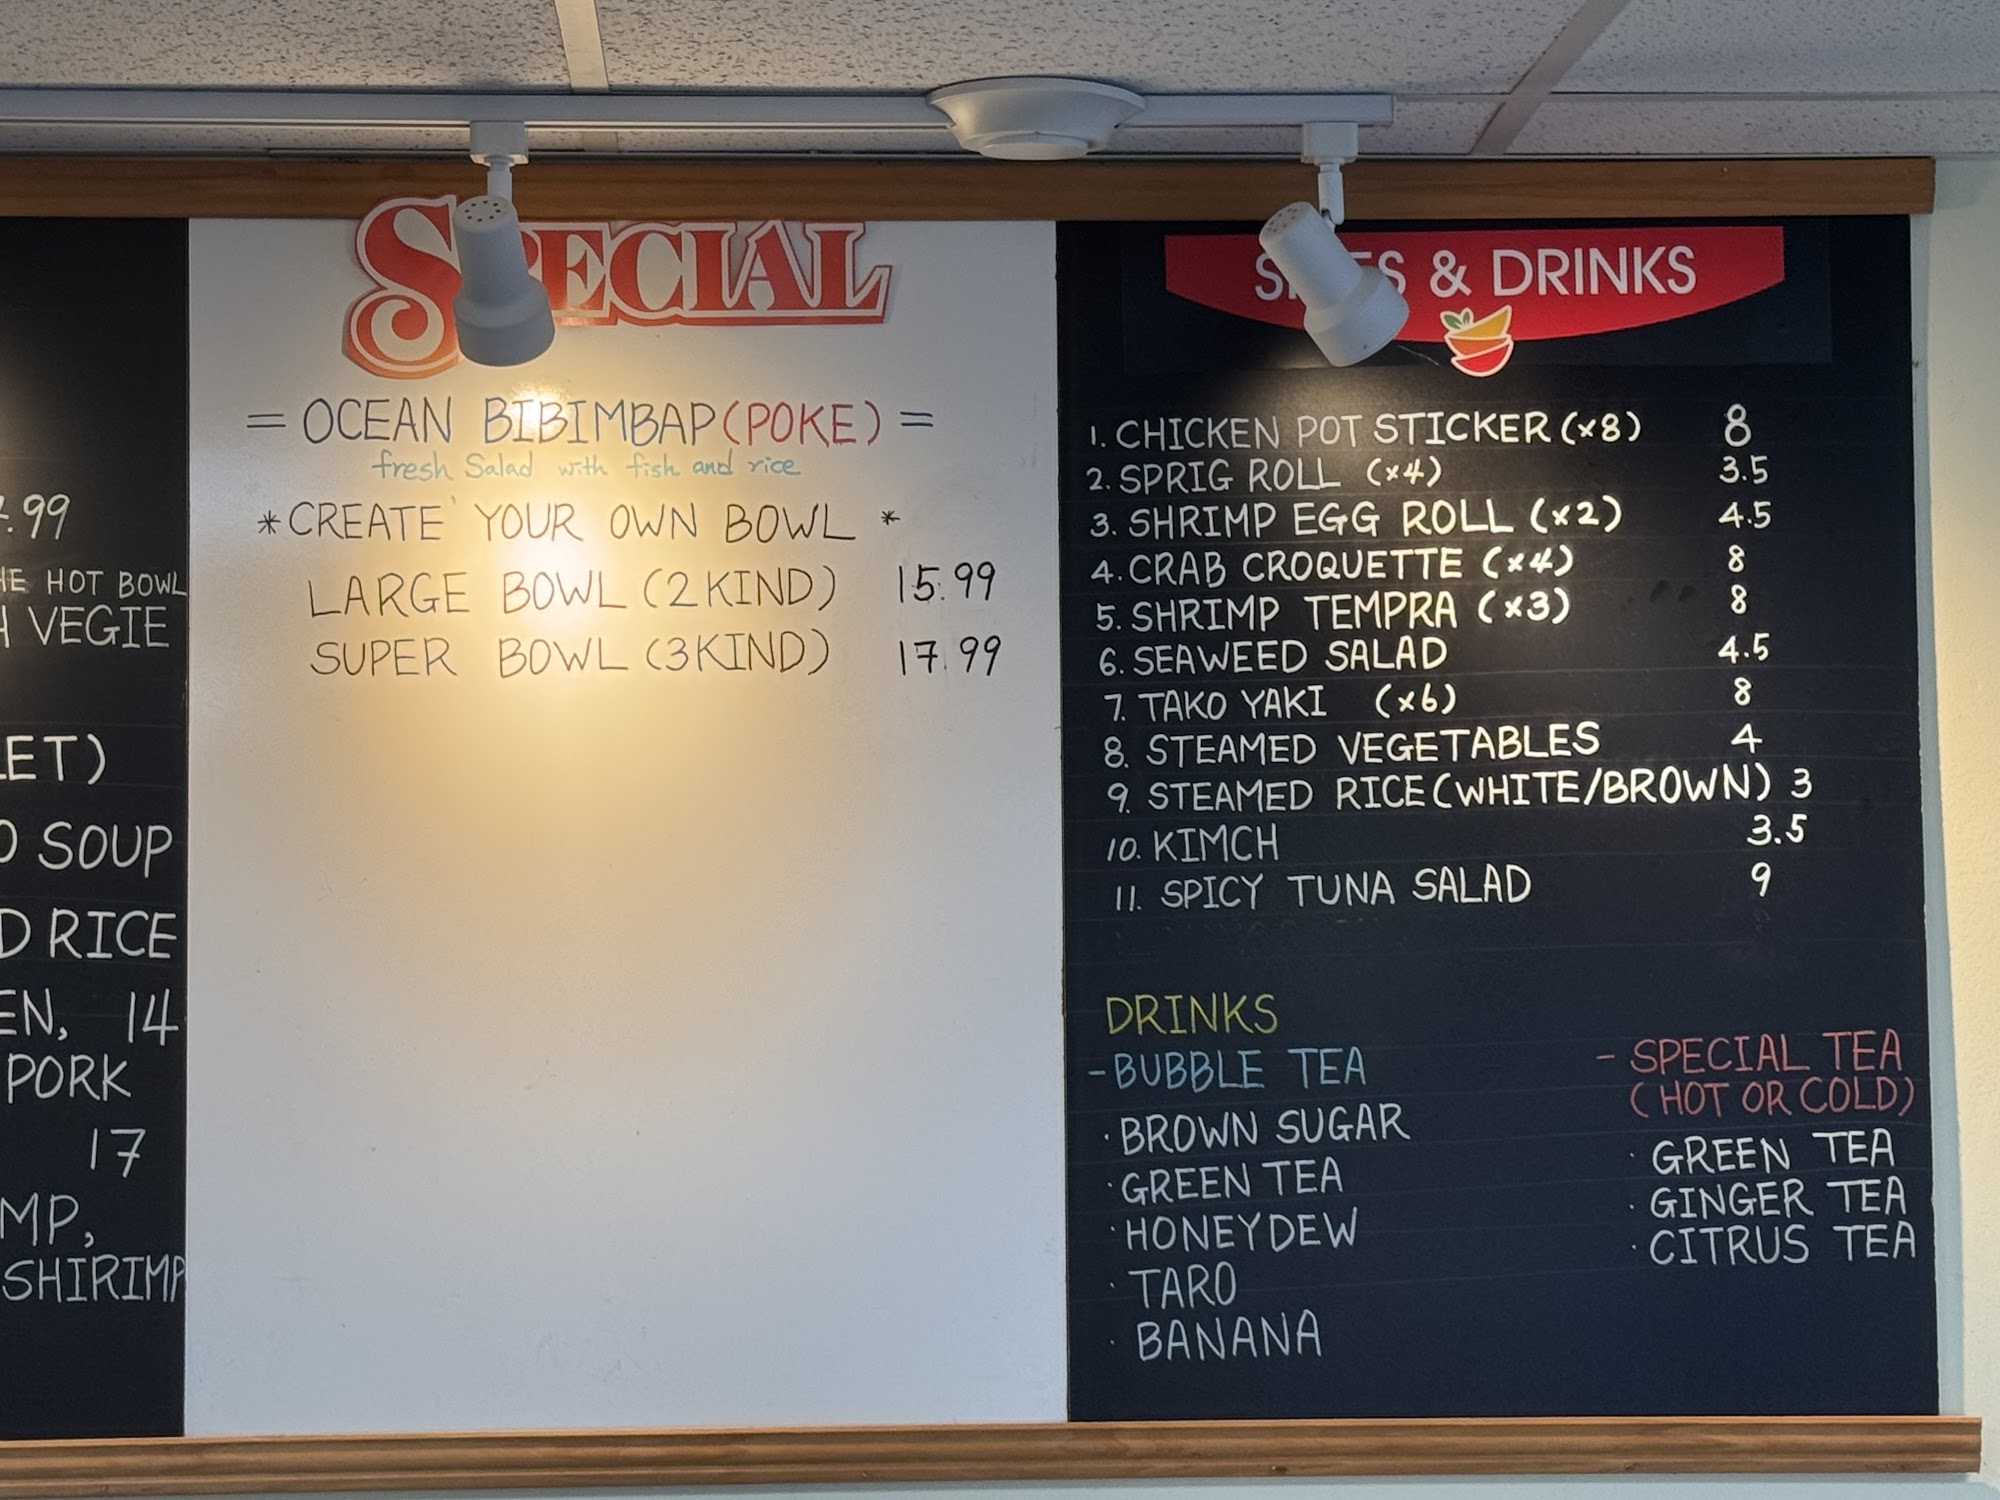 .99
HE HOT BOWL
VEGIE
LET)
SOUP
RICE
EN, 14
PORK
17
MP,
SHIRIMP
SPECIAL
= OCEAN BIBIMBAP (POKE) =
fresh Salad with fish and rice
*CREATE YOUR OWN BOWL *
LARGE BOWL (2 KIND) 15.99
SUPER BOWL (3 KIND) 17.99
& DRINKS
1. CHICKEN POT STICKER (x8) 8
2. SPRIG ROLL (x4) 3.5
3. SHRIMP EGG ROLL (x2) 4.5
4. CRAB CROQUETTE (x4) 8
5. SHRIMP TEMPRA (x3) 8
6. SEAWEED SALAD 4.5
7. TAKO YAKI (x6) 8
8. STEAMED VEGETABLES 4
9. STEAMED RICE (WHITE/BROWN) 3
10. KIMCH 3.5
11. SPICY TUNA SALAD 9
DRINKS
- BUBBLE TEA
· BROWN SUGAR
· GREEN TEA
· HONEYDEW
· TARO
· BANANA
- SPECIAL TEA
(HOT OR COLD)
· GREEN TEA
· GINGER TEA
· CITRUS TEA